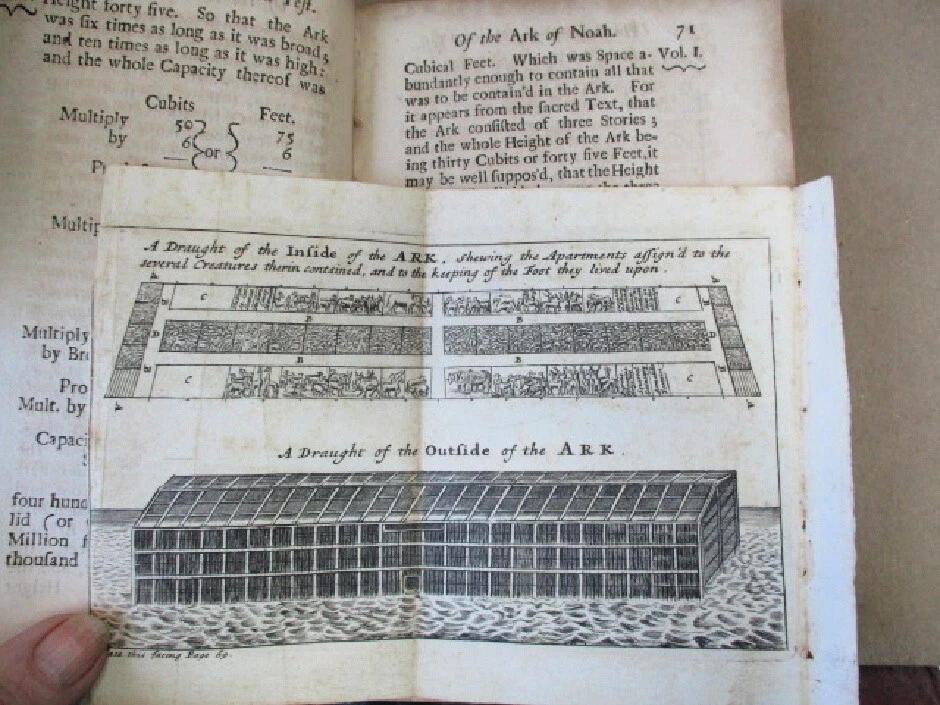 Height forty five. So that the Ark
was ſix times as long as it was broad,
and ten times as long as it was high:
and the whole Capacity thereof was
Cubits Feet.
Multiply 50 75
by 6 or 6
Multip
Multiply
by Bre
Pro
Mult. by
Capaci
four hund
lid (or
Million f
thouſand
Of the Ark of Noah. 71
Cubical Feet. Which was Space a- Vol. I.
bundantly enough to contain all that
was to be contain'd in the Ark. For
it appears from the ſacred Text, that
the Ark conſiſted of three Stories;
and the whole Height of the Ark be-
ing thirty Cubits or forty five Feet, it
may be well ſuppos'd, that the Height
A Draught of the Inſide of the ARK, ſhewing the Apartments aſſign'd to the
ſeveral Creatures therin contained, and to the keeping of the Foot they lived upon.
A A
C C
B
D D
B B
C C
A A
A Draught of the Outſide of the ARK.
this facing Page 69.